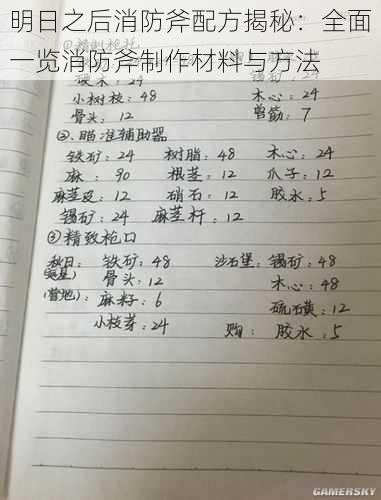 明日之后消防斧配方揭秘：全面
一览消防斧制作材料与方法
①精制枪托
硬木：24
小树枝：48 木心：24
骨头：12 兽筋：7
②瞄准辅助器
铁矿：24 树脂：48 木心：24
麻：90 根茎：12 爪子：12
麻茎皮：12 硝石：12 胶水：5
锡矿：24 麻茎杆：12
③精致枪口
秋日：铁矿：48 沙石堡：锡矿：48
骨头：12 木心：48
(营地)：麻籽：6 硫磺：12
小枝芽：24 购：胶水：5
GAMERSKY